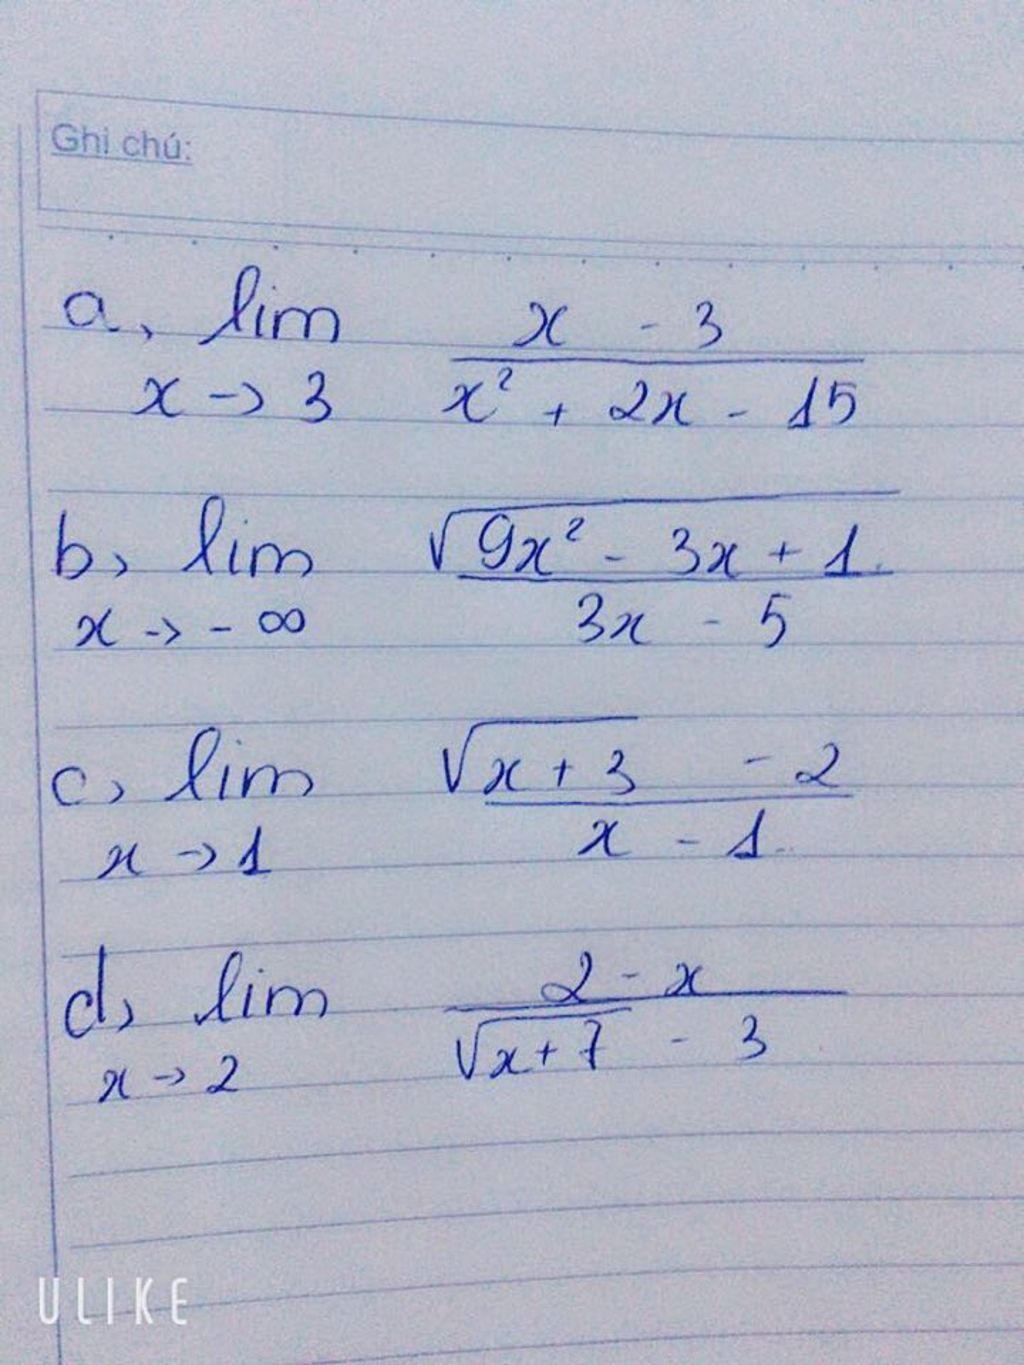 Ghi chú:
a, lim x - 3
x -> 3 x² + 2x - 15
b, lim √9x² - 3x + 1
x -> - ∞ 3x - 5
c, lim √x + 3 - 2
x -> 1 x - 1
d, lim 2 - x
x -> 2 √x + 7 - 3
ULIKE